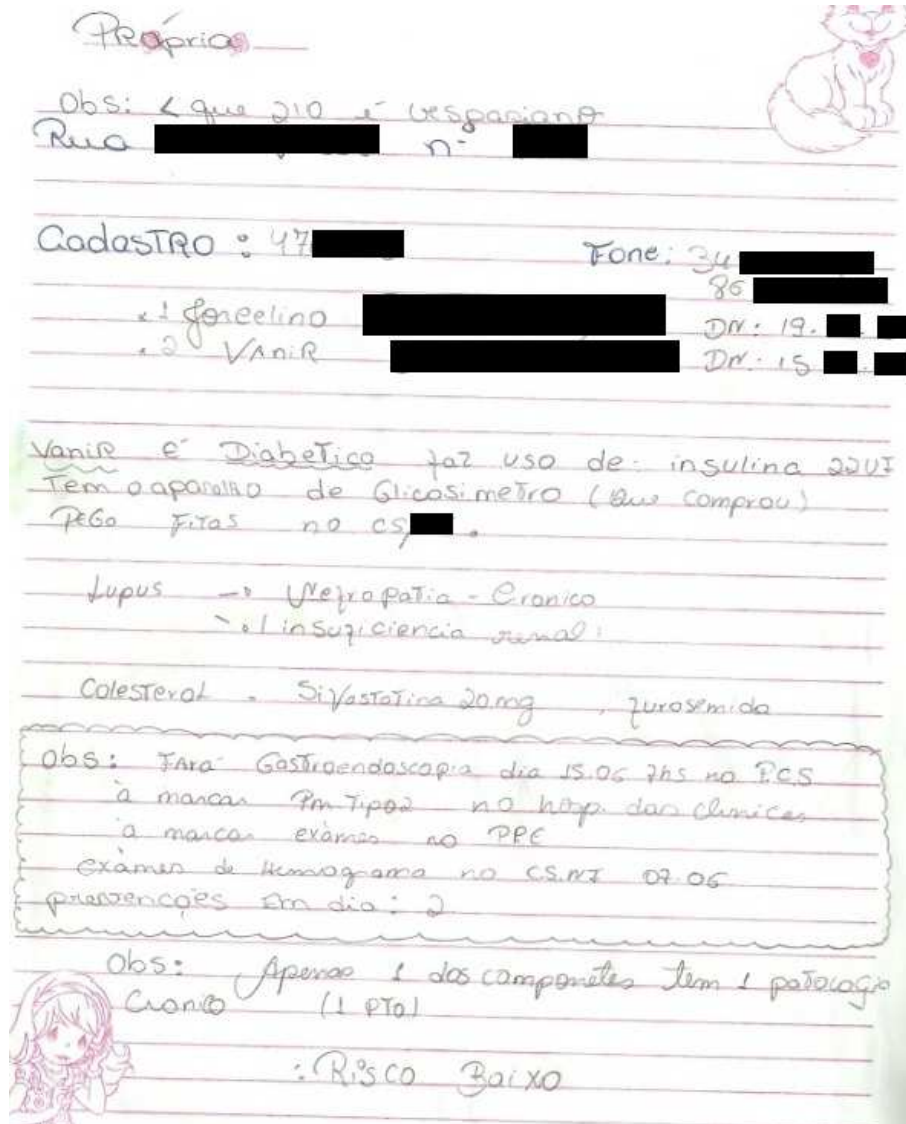 Própria
Obs: < que 210 é vespasiano
Rua nº
CadasTRO : 47
Fone: 34
86
.1 Joncelino DN: 19.
.2 VAniR DN: 15
Vanir é DiabeTico faz uso de: insulina 22UI
Tem o aparelho de GlicosimeTro (que comprou)
PEGO FiTas no CS,
Lupus → NefropaTia - Cronico
insuficiencia renal
ColesTerol - SivasTaTina 20mg , furosemida
Obs: FArá Gastroendoscopia dia 15.06 7hs no P.C.S
à marcar Pm Tipo2 no hosp. das Clinicas
à marcar exâmes no PPE
exâmes de Hemograma no CS.NI 07.06
prevenções Em dia: 2
Obs: Apenas 1 dos componetes tem 1 patologia
Cronico (1 PTo)
: Risco Baixo